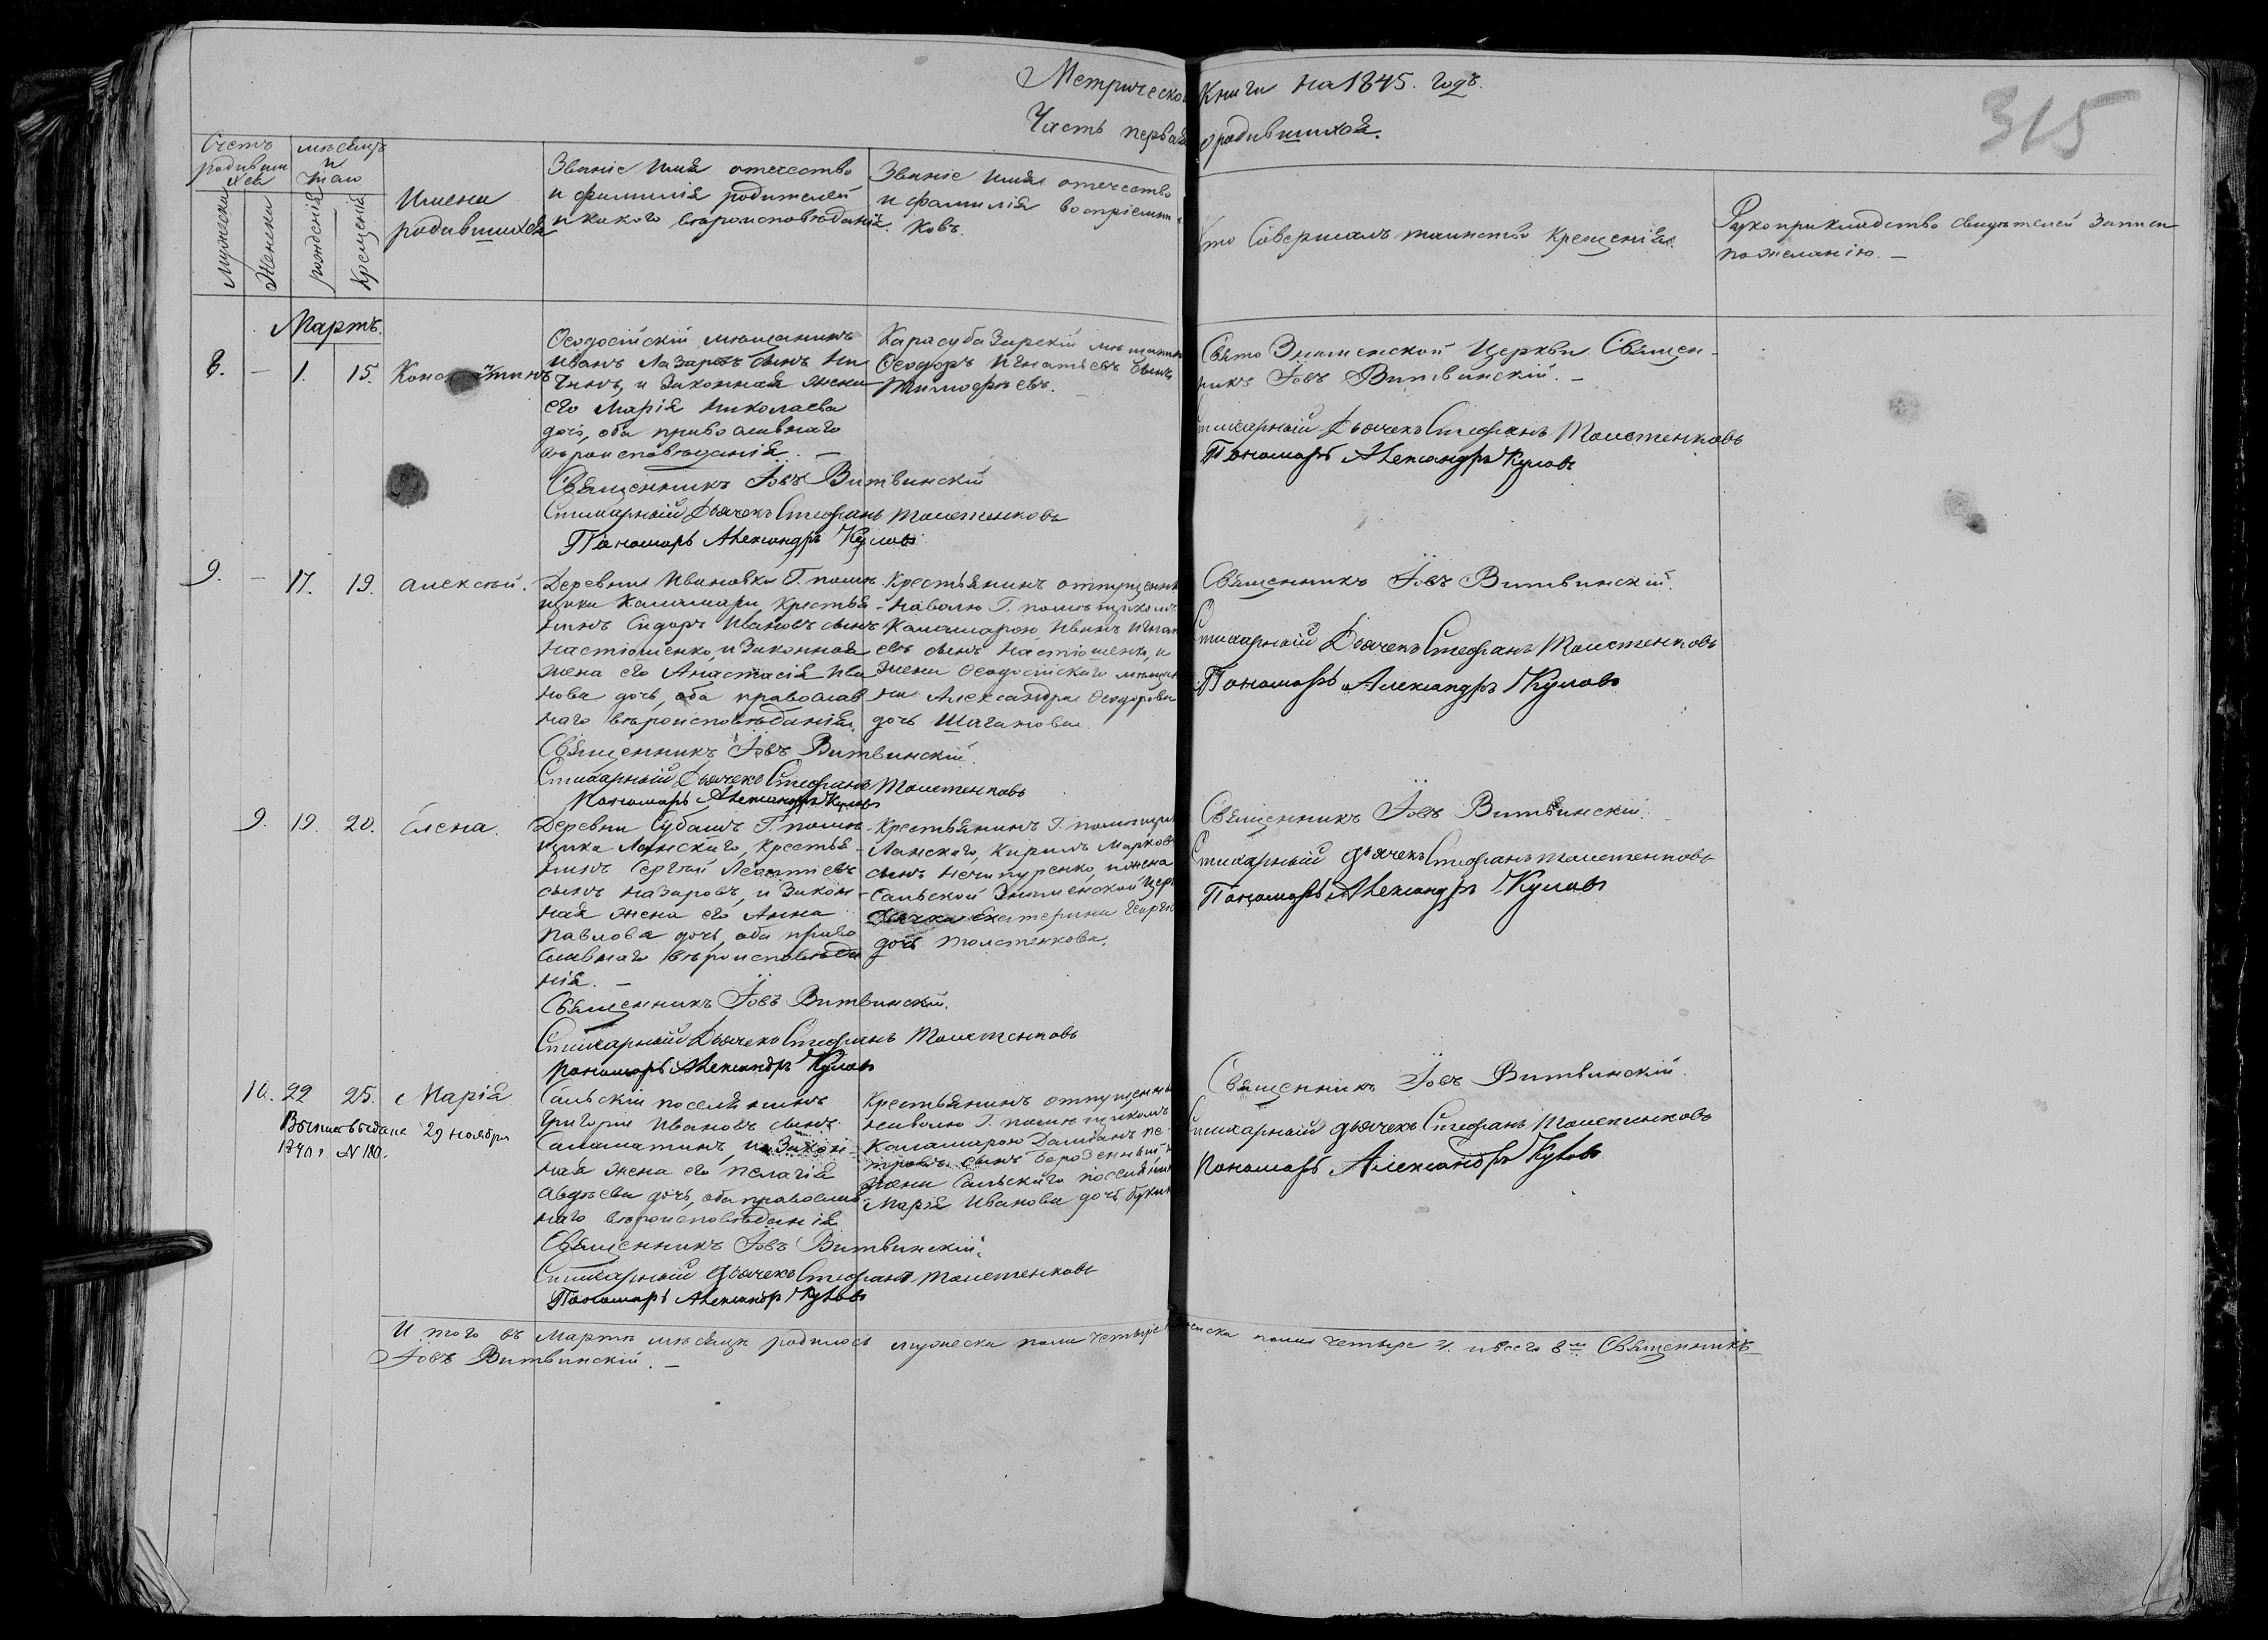 Метрической Книги на 1845. годъ.
Часть первая о родившихся.
315
Счетъ родившихся
мѣсяцъ и число
Мужеска
Женска
рожденія
Крещенія
Имена
родившихся
Званіе Имя отечество
и фамилія родителей
и какого вѣроисповѣданія.
Званіе имя отечество
и фамилія воспріемни-
ковъ.
Кто Совершалъ таинство Крещенія.
Рукоприкладство свидѣтелей записи
по желанію. —
Мартъ.
8. — 1. 15. Константинъ
Ѳеодосійскій мѣщанинъ
Иванъ Лазаревъ сынъ
и Законная жена
его Марія Николаева
дочь, оба православнаго
вѣроисповѣданія. —
Карасубазарскій мѣщанинъ
Ѳеодоръ Игнатьевъ сынъ
Тимофѣевъ.
Свято Знаменской Церкви Священ-
никъ Іовъ Витвинскій. —
Стихарный Дьячекъ Стефанъ Толстенковъ
Пономарь Александръ Куловъ
Священникъ Іовъ Витвинскій
Стихарный Дьячекъ Стефанъ Толстенковъ
Пономарь Александръ Куловъ
9. — 17. 19. Алексѣй.
Деревни Ивановки Г. помѣ-
щика Каламари, Крестья-
нинъ Сидоръ Ивановъ сынъ
Настюшенко, и Законная
жена его Анастасія Ива
нова дочь, оба православ
наго вѣроисповѣданія.
Крестьянинъ отпущенный
на волю Г. помѣщикомъ
Каламарою, Иванъ Игнать
евъ сынъ Настюшенко, и
жена Ѳеодосійскаго мѣщан
на Александра Ѳеодорова
дочь Шаганова.
Священникъ Іовъ Витвинскій.
Стихарный Дьячекъ Стефанъ Толстенковъ
Пономарь Александръ Куловъ
Священникъ Іовъ Витвинскій.
Стихарный Дьячекъ Стефанъ Толстенковъ
Пономарь Александръ Куловъ
9. 19. 20. Елена.
Деревни Субашъ Г. помѣ-
щика Ланскаго, Крестья-
нинъ Сергѣй Леонтіевъ
сынъ Назаровъ, и Закон-
ная жена его Анна
Павлова дочь, оба право
славнаго вѣроисповѣда
нія. —
Крестьянинъ Г. помѣщика
Ланскаго, Кирилъ Марковъ
сынъ Нечипуренко, и жена
Сальской Знаменской Цер
Дьячка Екатерина Георгіев
дочь Толстенкова.
Священникъ Іовъ Витвинскій.
Стихарный дьячекъ Стефанъ Толстенковъ
Пономарь Александръ Куловъ
Священникъ Іовъ Витвинскій.
Стихарный Дьячекъ Стефанъ Толстенковъ
Пономарь Александръ Куловъ
10. 22 25. Марія
29 ноября
N 180.
Сальскій поселянинъ
Григорій Ивановъ сынъ
Саламатинъ, и Закон-
ная жена его Пелагія
Авдѣева дочь, оба православ
наго вѣроисповѣданія
Крестьянинъ отпущенный
на волю Г. помѣщикомъ
Каламарою Даміанъ Пе-
тровъ сынъ
жена Сальскаго поселянин
Марія Иванова дочь
Священникъ Іовъ Витвинскій.
Стихарный дьячекъ Стефанъ Толстенковъ
Пономарь Александръ Куловъ
Священникъ Іовъ Витвинскій.
Стихарный дьячекъ Стефанъ Толстенковъ
Пономарь Александръ Куловъ
И того въ Мартѣ мѣсяцѣ родилось мужеска пола четыре женска пола четыре и всего 8мь Священникъ
Іовъ Витвинскій. —